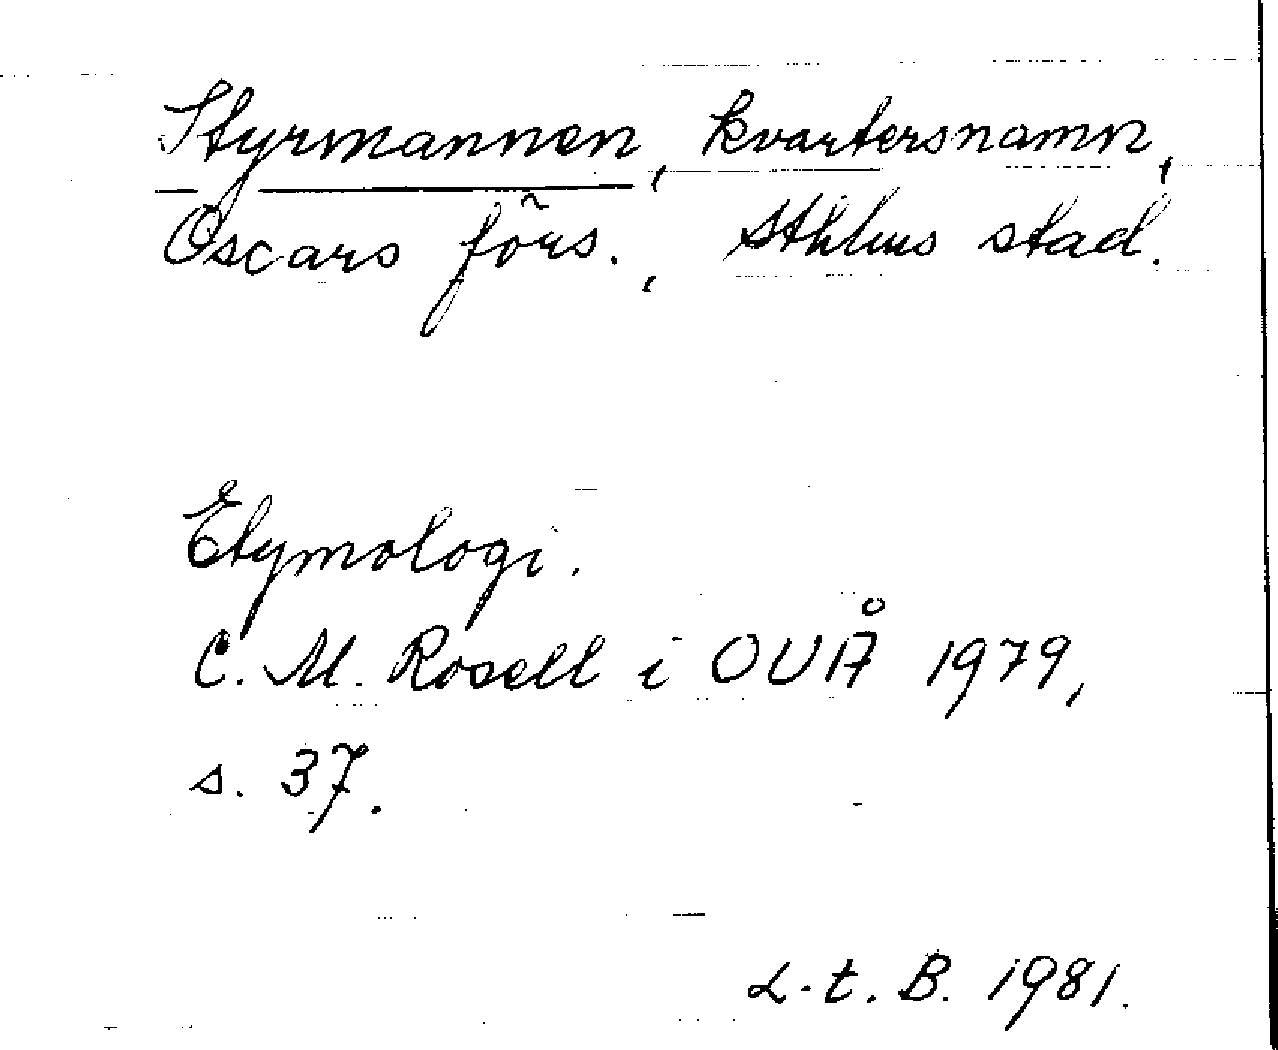 Styrmannen, kvartersnamn,
Oscars förs., Sthlms stad.
Etymologi.
C. M. Rosell i OUÅ 1979,
s. 37.
L.t.B. 1981.